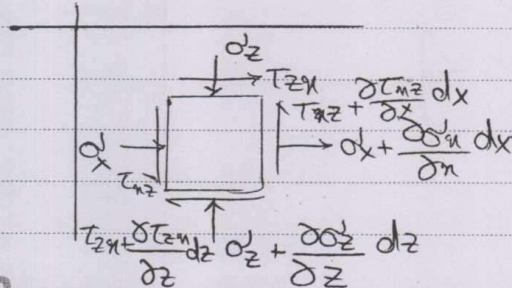 σz
τzx
τxz + ∂τxz/∂x dx
σx
σx + ∂σx/∂x dx
τxz
τzx + ∂τzx/∂z dz
σz + ∂σz/∂z dz